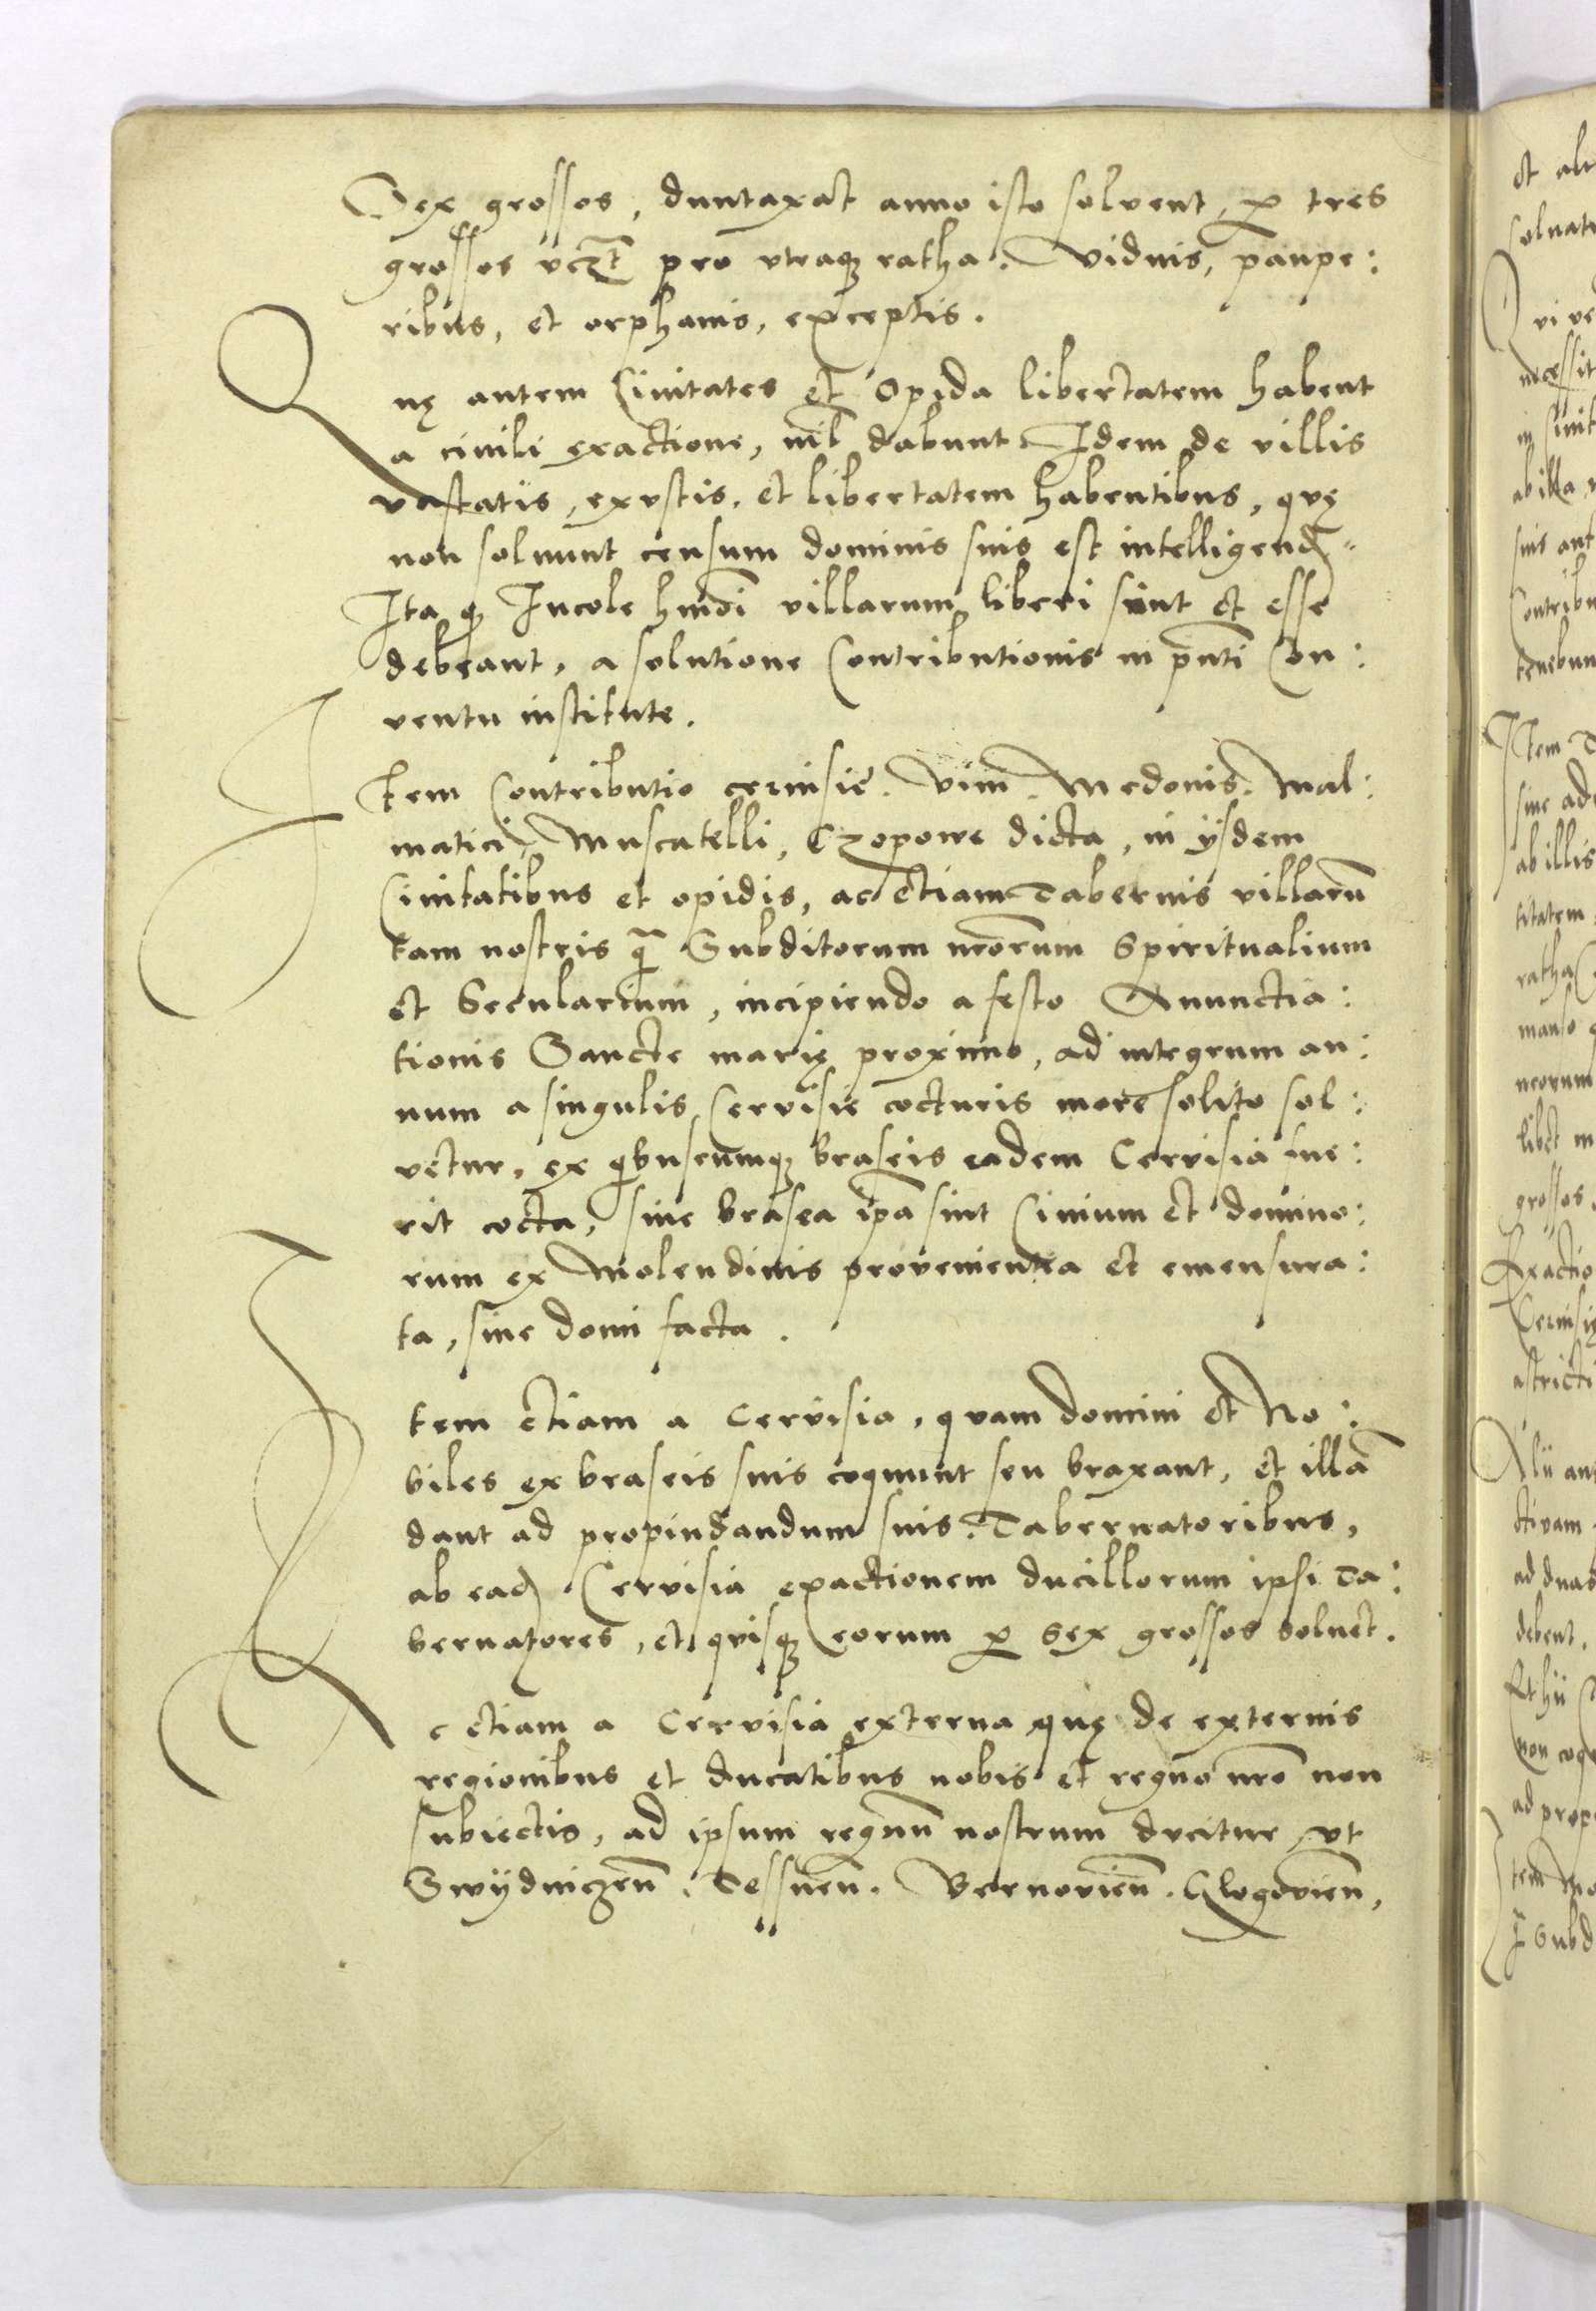 Sex grossos, duntaxat anno isto solvent, ꝑ tres
grossos vczt pro vtraqꝫ ratha. Viduis, paupe:
ribus, et orphanis, exceptis.
Quę autem Ciuitates et Opida libertatem habent
a ciuili exactione, nil dabunt. Idem de villis
vastatis, exvstis, et libertatem habentibus, quę
non soluunt censum dominis suis est intelligend
Ita ꝙ Incole hmōi villarum liberi sint et esse
debeant, a solutione Contributionis in pn̄ti Con:
ventu institute.
Item Contributio ceruisie. Vini. Medonis. Mal:
matici, Muscatelli, Czopowe dicta, in ÿsdem
Ciuitatibus et opidis, ac etiam Tabernis villarū
tam nostris q̄ Subditorum nr̄orum Spiritualium
et Secularium, incipiendo a festo Anunctia:
tionis Sancte marię proximo, ad integrum an:
num a singulis Cervisie cocturis more solito sol:
vetur, ex qͥbuscumqꝫ braseis eadem Cervisia fue:
rit cocta, siue brasea ip̄a sint Ciuium et domino:
rum ex Molendinis provenientia et emensura:
ta, siue domi facta.
Item etiam a Cervisia, quam domini et No:
biles ex braseis suis coquunt seu braxant, et illā
dant ad propinandum suis. Tabernatoribus,
ab ead Cervisia exactionem ducillorum ipsi Ta:
bernatores, et quisqꝫ eorum ꝑ sex grossos soluet.
Ac etiam a Cervisia externa quę de externis
regionibus et ducatibus nobis et regno nr̄o non
subiectis, ad ipsum regnū nostrum ducitur, vt
Swÿdniczen̄. Tessnen̄. Bernovien̄. Glogovien̄,
et alt
Qui ve
necessit
ab illa
suis aut
Contribu
tenebun
Item
siue ad
ab illis
titatem
ratha
manso
nrorum
libet
grossos
Exactio
Ceruisię
astricti
Alii aut
ad duas
debent.
Et hii
non coq
ad prop